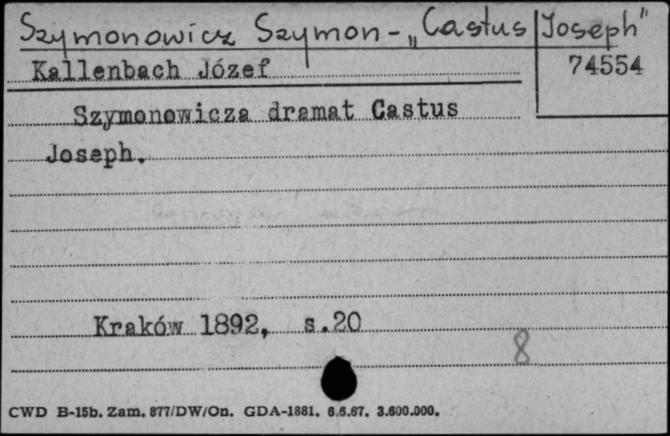 Szymonowicz Szymon - „Castus Joseph"
Kallenbach Józef
74554
Szymonowicza dramat Castus
Joseph.
Kraków 1892, s.20
8
CWD B-15b. Zam. 877/DW/On. GDA-1881. 6.6.67. 3.600.000.